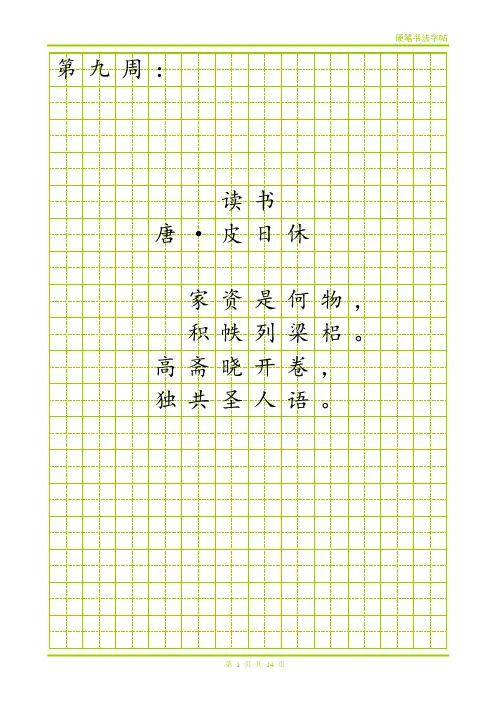 硬笔书法字帖
第九周:
读书
唐·皮日休
家资是何物,
积帙列梁梠。
高斋晓开卷,
独共圣人语。
第 1 页 共 14 页